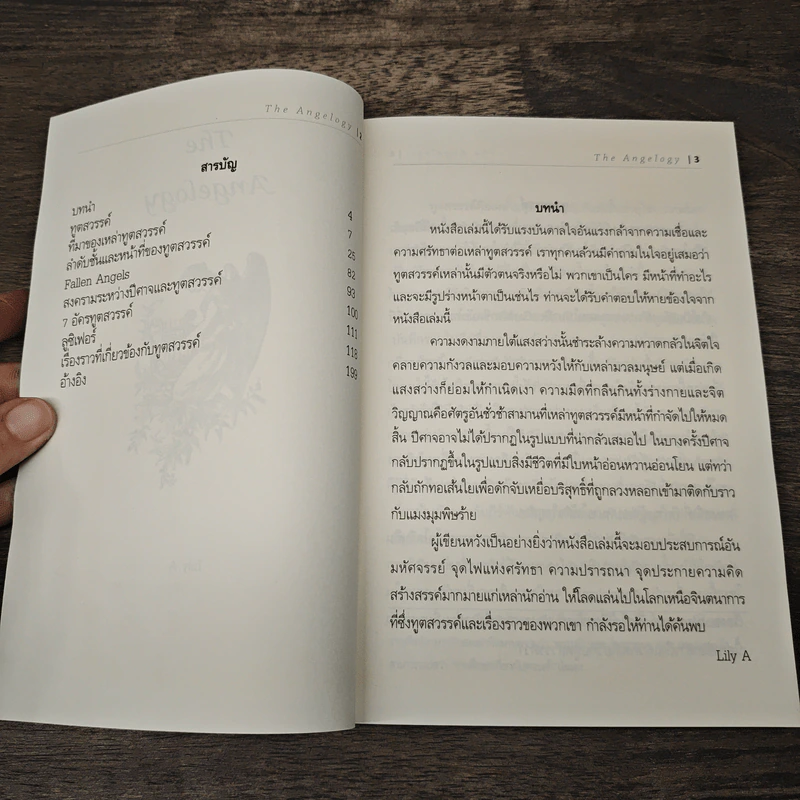 The Angelogy | 2
สารบัญ
บทนำ 4
ทูตสวรรค์ 7
ที่มาของเหล่าทูตสวรรค์ 25
ลำดับชั้นและหน้าที่ของทูตสวรรค์ 82
Fallen Angels 93
สงครามระหว่างปีศาจและทูตสวรรค์ 100
7 อัครทูตสวรรค์ 111
ลูซิเฟอร์ 118
เรื่องราวที่เกี่ยวข้องกับทูตสวรรค์ 199
อ้างอิง
The Angelogy | 3
บทนำ
หนังสือเล่มนี้ได้รับแรงบันดาลใจอันแรงกล้าจากความเชื่อและ
ความศรัทธาต่อเหล่าทูตสวรรค์ เราทุกคนล้วนมีคำถามในใจอยู่เสมอว่า
ทูตสวรรค์เหล่านั้นมีตัวตนจริงหรือไม่ พวกเขาเป็นใคร มีหน้าที่ทำอะไร
และจะมีรูปร่างหน้าตาเป็นเช่นไร ท่านจะได้รับคำตอบให้หายข้องใจจาก
หนังสือเล่มนี้
ความงดงามภายใต้แสงสว่างนั้นชำระล้างความหวาดกลัวในจิตใจ
คลายความกังวลและมอบความหวังให้กับเหล่ามวลมนุษย์ แต่เมื่อเกิด
แสงสว่างก็ย่อมให้กำเนิดเงา ความมืดที่กลืนกินทั้งร่างกายและจิต
วิญญาณคือศัตรูอันชั่วช้าสามานที่เหล่าทูตสวรรค์มีหน้าที่กำจัดไปให้หมด
สิ้น ปีศาจอาจไม่ได้ปรากฏในรูปแบบที่น่ากลัวเสมอไป ในบางครั้งปีศาจ
กลับปรากฏขึ้นในรูปแบบสิ่งมีชีวิตที่มีใบหน้าอ่อนหวานอ่อนโยน แต่ทว่า
กลับถักทอเส้นใยเพื่อดักจับเหยื่อบริสุทธิ์ที่ถูกลวงหลอกเข้ามาติดกับราว
กับแมงมุมพิษร้าย
ผู้เขียนหวังเป็นอย่างยิ่งว่าหนังสือเล่มนี้จะมอบประสบการณ์อัน
มหัศจรรย์ จุดไฟแห่งศรัทธา ความปรารถนา จุดประกายความคิด
สร้างสรรค์มากมายแก่เหล่านักอ่าน ให้โลดแล่นไปในโลกเหนือจินตนาการ
ที่ซึ่งทูตสวรรค์และเรื่องราวของพวกเขา กำลังรอให้ท่านได้ค้นพบ
Lily A